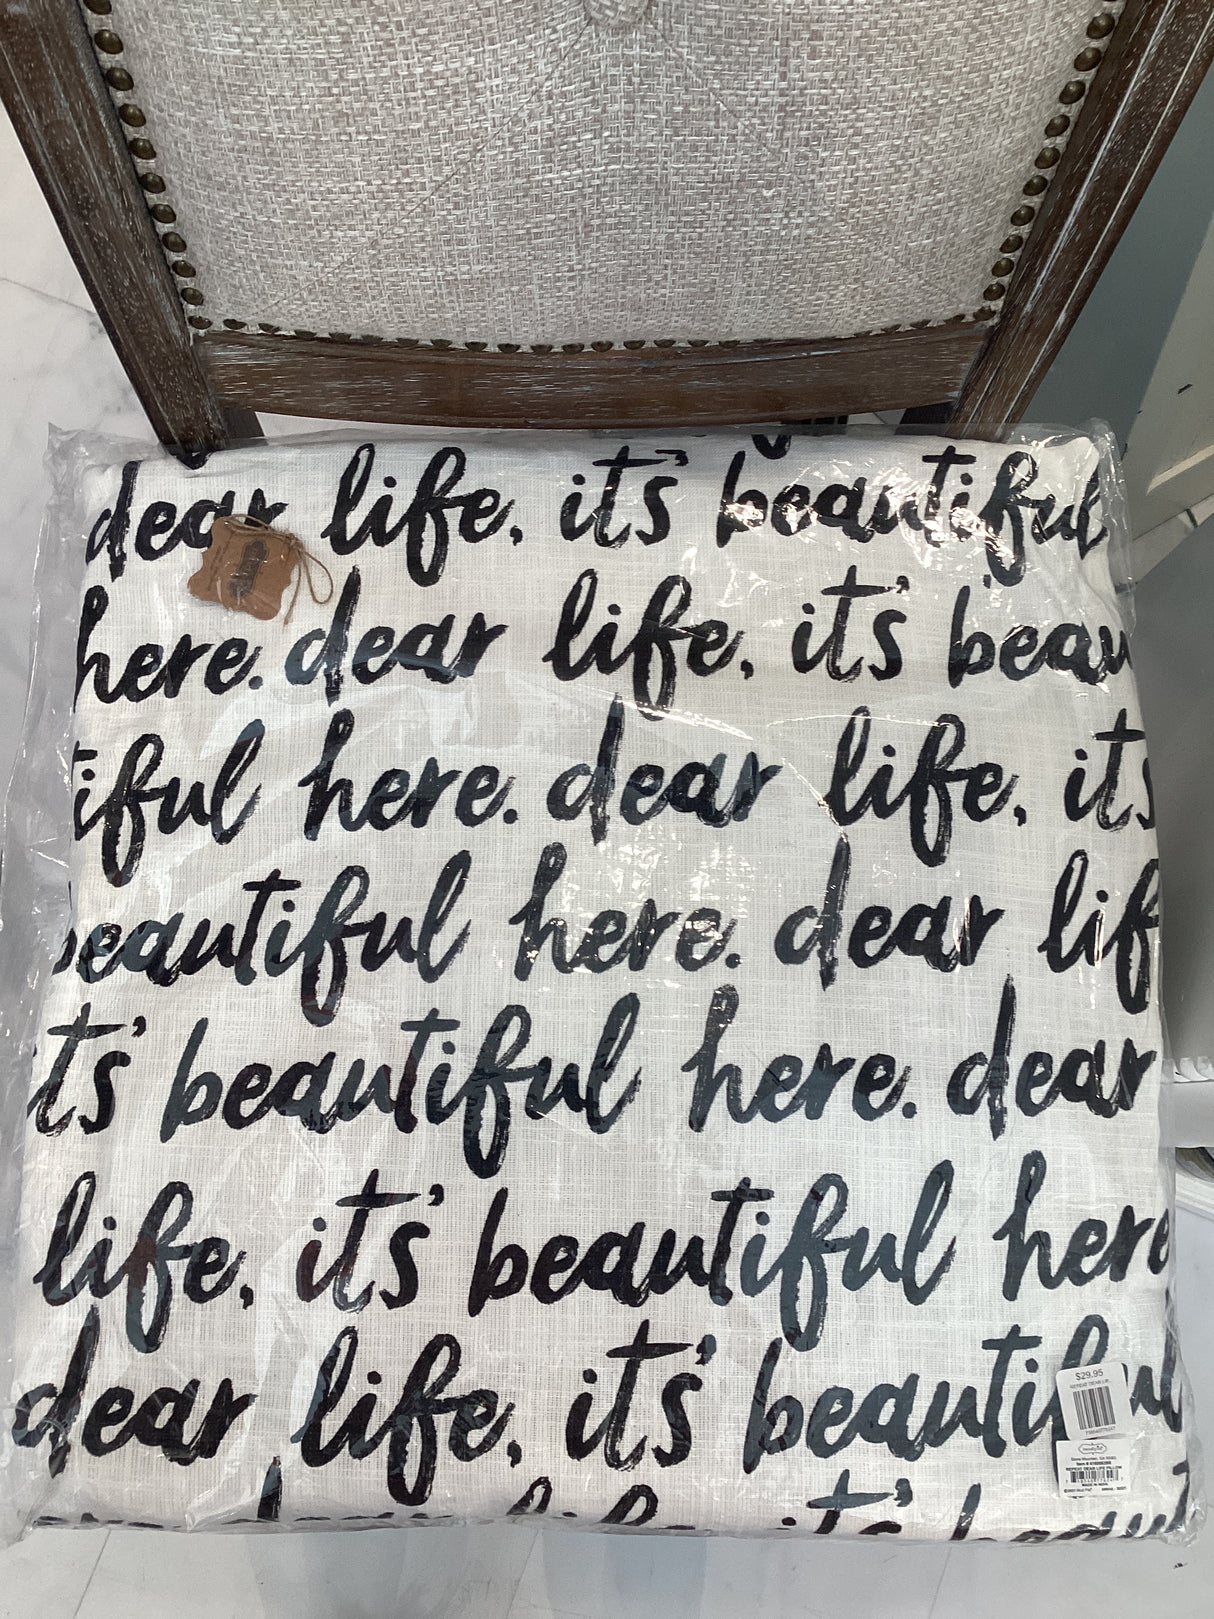 dear life, it's beautiful
here. dear life, it's beau
tiful here. dear life, it's
beautiful here. dear lif
it's beautiful here. dear
life, it's beautiful here
dear life, it's beautiful
$29.95
REPEAT DEAR LIFE PILLOW
MADE IN INDIA